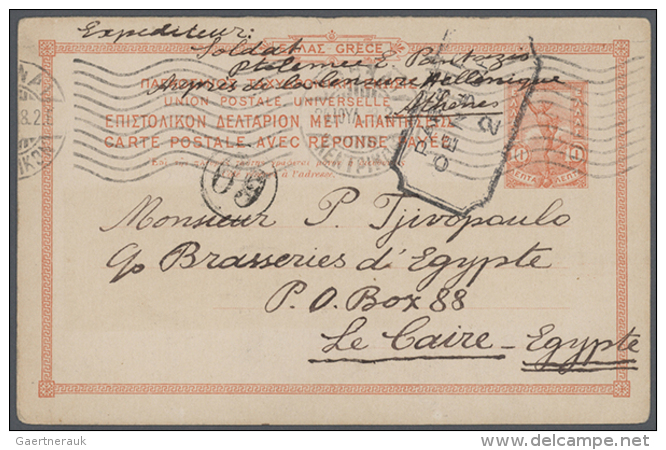 Expediteur:
Soldat
ΕΛΛΑΣ GRECE
Ptolemee E. Pantazis
Aupres de la censure Hellenique
Athenes
UNION POSTALE UNIVERSELLE
ΕΠΙΣΤΟΛΙΚΟΝ ΔΕΛΤΑΡΙΟΝ ΜΕΤ ΑΠΑΝΤΗΣΕΩΣ
CARTE POSTALE AVEC RÉPONSE PAYÉE
à l'adresse.
ΛΕΠΤΑ ΛΕΠΤΑ
69
Monsieur P. Tjivopoulo
c/o Brasseries d'Egypte
P.O. Box 88
Le Caire - Egypte
Gaertnerauk
delcampe.net